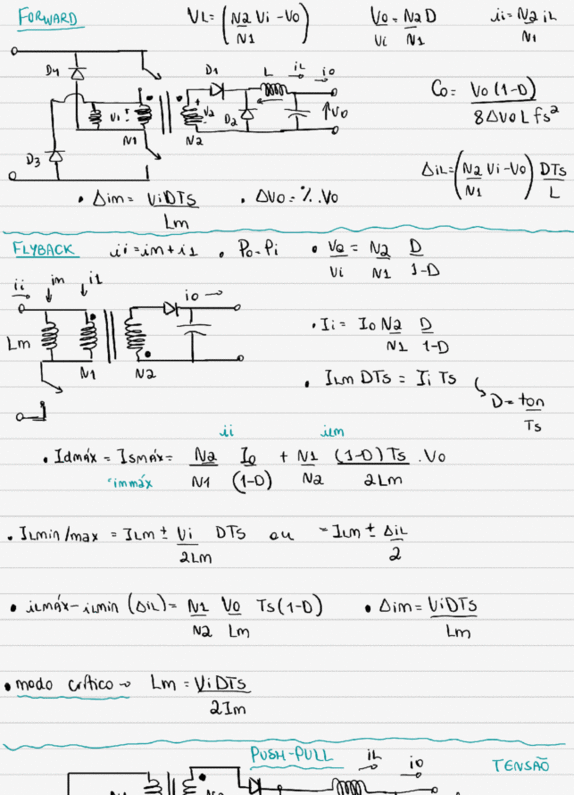 FORWARD
VL = (N2/N1 Vi - Vo)
Vo/Vi = N2/N1 D
ii = N2/N1 iL
D4
D1
L
iL
io
Vi
V2
D2
Vo
N1
N2
D3
Co = Vo (1-D) / 8ΔVo L fs²
ΔiL = (N2/N1 Vi - Vo) DTs/L
• Δim = ViDTs/Lm
• ΔVo = %.Vo
FLYBACK
ii = im + i1
• Po=Pi
• Vo/Vi = N2/N1 D/1-D
ii
im
i1
io
Lm
N1
N2
• Ii = Io N2/N1 D/1-D
• ILm DTs = Ii Ts
D = ton/Ts
ii
iLm
• Idmáx = Ismáx = N2/N1 Io/(1-D) + N1/N2 (1-D)Ts/2Lm . Vo
immáx
• ILmin/max = ILm ± Vi/2Lm DTs ou = ILm ± ΔiL/2
• iLmáx - iLmin (ΔiL) = N1/N2 Vo/Lm Ts(1-D)
• Δim = ViDTs/Lm
• modo crítico → Lm = ViDTs/2Im
PUSH-PULL
iL
io
TENSÃO